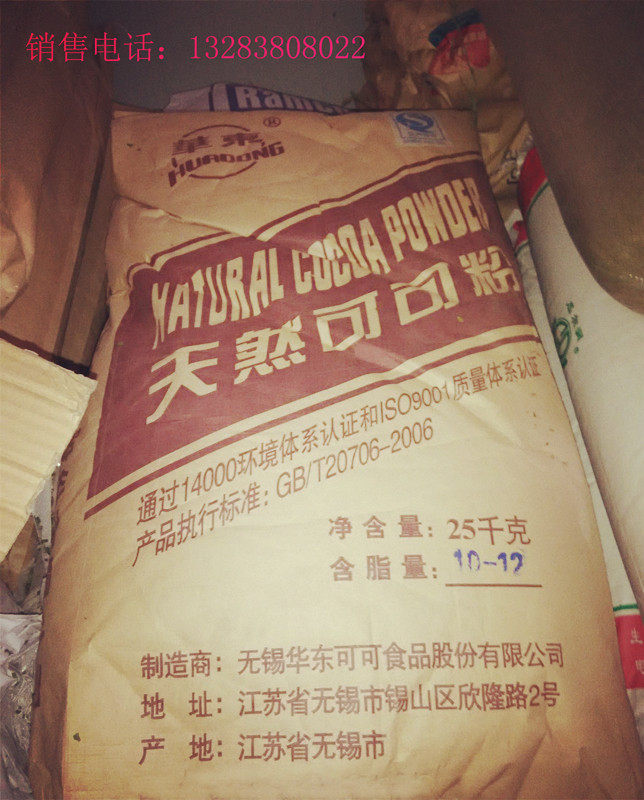 销售电话：13283808022
Ram
華東®
HUADONG
NATURAL COCOA POWDER
天然可可粉
通过14000环境体系认证和ISO9001质量体系认证
产品执行标准：GB/T20706-2006
净含量：25千克
含脂量：10-12
制造商：无锡华东可可食品股份有限公司
地 址：江苏省无锡市锡山区欣隆路2号
产 地：江苏省无锡市